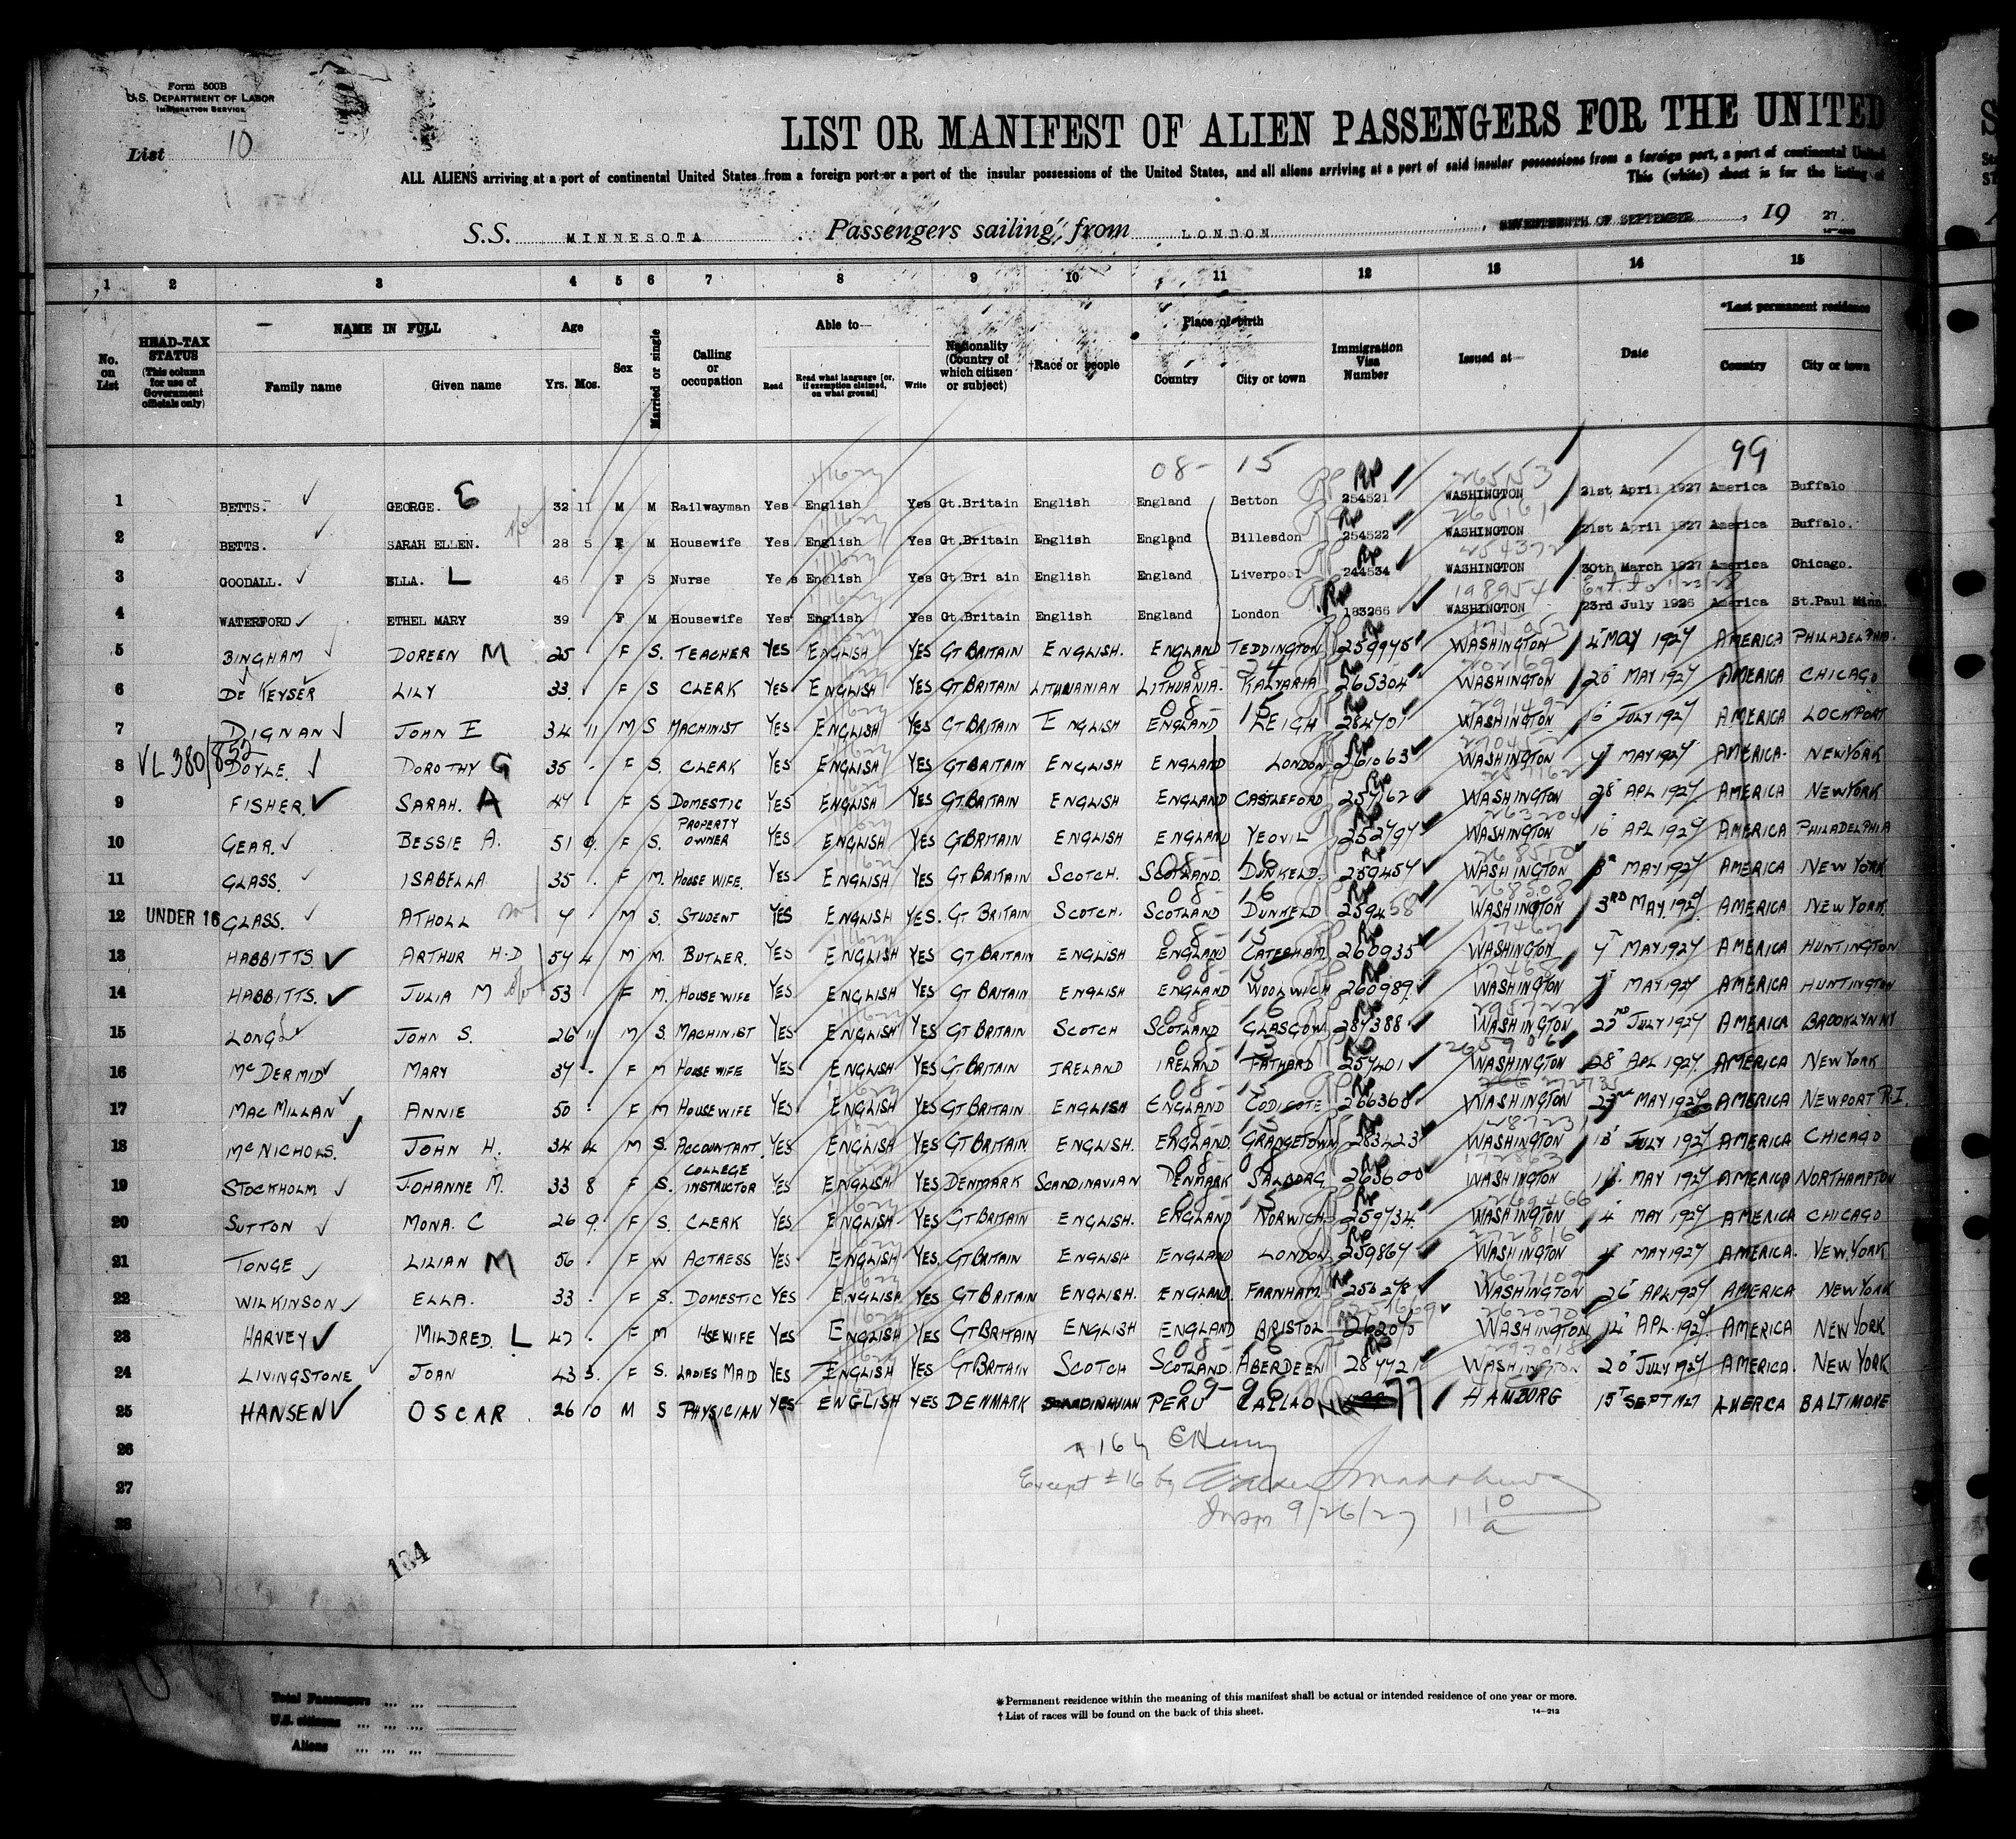 Form 500B
U.S. DEPARTMENT OF LABOR
IMMIGRATION SERVICE
List 10
LIST OR MANIFEST OF ALIEN PASSENGERS FOR THE UNITED
ALL ALIENS arriving at a port of continental United States from a foreign port or a port of the insular possessions of the United States, and all aliens arriving at a port of said insular possessions from a foreign port, a port of continental United
This (white) sheet is for the listing of
S.S. MINNESOTA Passengers sailing from LONDON, SEVENTEENTH OF SEPTEMBER, 19 27
1 2 3 4 5 6 7 8 9 10 11 12 13 14 15
No. on List
HEAD-TAX STATUS (This column for use of Government officials only)
NAME IN FULL
Family name Given name
Age
Yrs. Mos.
Sex
Married or single
Calling or occupation
Able to—
Read Read what language [or, if exemption claimed, on what ground] Write
Nationality (Country of which citizen or subject)
†Race or people
Place of birth
Country City or town
Immigration Visa Number
Issued at—
Date
*Last permanent residence
Country City or town
08- 15 99
1 BETTS. GEORGE. E 32 11 M M Railwayman Yes English Yes Gt.Britain English England Betton 254521 WASHINGTON 21st April 1927 America Buffalo
2 BETTS. SARAH ELLEN. 28 5 F M Housewife Yes English Yes Gt.Britain English England Billesdon 254522 WASHINGTON 21st April 1927 America Buffalo.
3 GOODALL. ELLA. L 46 F S Nurse Yes English Yes Gt.Bri ain English England Liverpool 244534 WASHINGTON 30th March 1927 America Chicago.
4 WATERFORD ETHEL MARY 39 F M Housewife Yes English Yes Gt.Britain English England London 183266 WASHINGTON 23rd July 1926 America St.Paul Minn.
5 BINGHAM DOREEN M 25 F S. TEACHER YES ENGLISH YES GT BRITAIN ENGLISH. ENGLAND TEDDINGTON 259945 WASHINGTON 4 MAY 1927 AMERICA PHILADELPHIA
6 DE KEYSER LILY 33. F S CLERK YES ENGLISH YES GT BRITAIN LITHUANIAN LITHUANIA. KALVARIA 265304 WASHINGTON 20 MAY 1927 AMERICA CHICAGO
7 DIGNAN JOHN E 34 11 M S MACHINIST YES ENGLISH YES GT BRITAIN ENGLISH ENGLAND LEIGH 284701 WASHINGTON 16 JULY 1927 AMERICA LOCKPORT
8 VL 380/855 DOYLE. DOROTHY G 35 F S. CLERK YES ENGLISH YES GT BRITAIN ENGLISH ENGLAND LONDON 261063 WASHINGTON MAY 1927 AMERICA. NEW YORK
9 FISHER. SARAH. A 44 F S DOMESTIC YES ENGLISH YES GT BRITAIN ENGLISH ENGLAND CASTLEFORD 257162 WASHINGTON 28 APL 1927 AMERICA NEW YORK
10 GEAR. BESSIE A. 51 9. F S. PROPERTY OWNER YES ENGLISH YES GT BRITAIN ENGLISH ENGLAND YEOVIL 252797 WASHINGTON 16 APL 1927 AMERICA PHILADELPHIA
11 GLASS. ISABELLA 35 F M. HOUSE WIFE. YES ENGLISH YES GT BRITAIN SCOTCH. SCOTLAND. DUNKELD. 259457 WASHINGTON 3 MAY 1927 AMERICA NEW YORK
12 UNDER 16 GLASS. ATHOLL 7 M S. STUDENT YES ENGLISH YES. GT BRITAIN SCOTCH. SCOTLAND DUNKELD 259458 WASHINGTON 3RD MAY. 1927. AMERICA NEW YORK.
13 HABBITTS. ARTHUR H.D 54 4 M M. BUTLER. YES ENGLISH YES GT BRITAIN ENGLISH ENGLAND CATERHAM 260935 WASHINGTON MAY 1927 AMERICA HUNTINGTON
14 HABBITTS. JULIA M 53 F M. HOUSE WIFE YES ENGLISH YES GT BRITAIN ENGLISH ENGLAND WOOLWICH 260989. WASHINGTON MAY 1927 AMERICA HUNTINGTON
15 LONG JOHN S. 26 11 M S. MACHINIST YES ENGLISH YES GT BRITAIN SCOTCH SCOTLAND GLASGOW 287388 WASHINGTON 22ND JULY 1927 AMERICA BROOKLYN NY
16 MC DERMID MARY 37 F M HOUSE WIFE YES ENGLISH YES GT BRITAIN IRELAND IRELAND FATHARD 257401 WASHINGTON 28 APL 1927. AMERICA NEW YORK
17 MACMILLAN ANNIE 50 F M HOUSE WIFE YES ENGLISH YES GT BRITAIN ENGLISH ENGLAND CODICOTE 266360 WASHINGTON 23RD MAY 1927 AMERICA NEWPORT R.I.
18 MC NICHOLS. JOHN H. 34 4 M S. ACCOUNTANT. YES ENGLISH YES GT BRITAIN. ENGLISH. ENGLAND. GRANGETOWN 283423 WASHINGTON 13 JULY 1927 AMERICA CHICAGO
19 STOCKHOLM JOHANNE M. 33 8 F S. COLLEGE INSTRUCTOR YES ENGLISH YES DENMARK SCANDINAVIAN DENMARK SALBORG 263600 WASHINGTON MAY 1927 AMERICA NORTHAMPTON
20 SUTTON MONA. C 26 9. F S. CLERK YES ENGLISH YES GT BRITAIN ENGLISH. ENGLAND NORWICH 259734 WASHINGTON 4 MAY 1927 AMERICA CHICAGO
21 TONGE LILIAN M 56 F W ACTRESS YES ENGLISH YES. GT BRITAIN ENGLISH ENGLAND LONDON 259867 WASHINGTON 4 MAY 1927 AMERICA. NEW YORK
22 WILKINSON ELLA. 33 F S. DOMESTIC YES ENGLISH YES GT BRITAIN ENGLISH. ENGLAND. FARNHAM 256278 WASHINGTON 26 APL 1927 AMERICA NEW YORK
23 HARVEY MILDRED. L 47 F M HSEWIFE YES ENGLISH YES GT BRITAIN ENGLISH ENGLAND BRISTOL 262070 WASHINGTON 14 APL. 1927. AMERICA NEW YORK
24 LIVINGSTONE JOAN 43 3. F S. LADIES MAID YES ENGLISH YES GT BRITAIN SCOTCH SCOTLAND. ABERDEEN 287421 WASHINGTON 20 JULY 1927 AMERICA. NEW YORK
25 HANSEN OSCAR 26 10 M S PHYSICIAN YES ENGLISH YES DENMARK SCANDINAVIAN PERU CALLAO 77 HAMBURG 15 SEPT 1927 AMERICA BALTIMORE
26
27 Except #16 by
28 9/26/27 11 10 a
134
Total Passengers ... ...
U.S. citizens ... ... ...
Aliens ... ... ...
*Permanent residence within the meaning of this manifest shall be actual or intended residence of one year or more.
†List of races will be found on the back of this sheet.
14—213